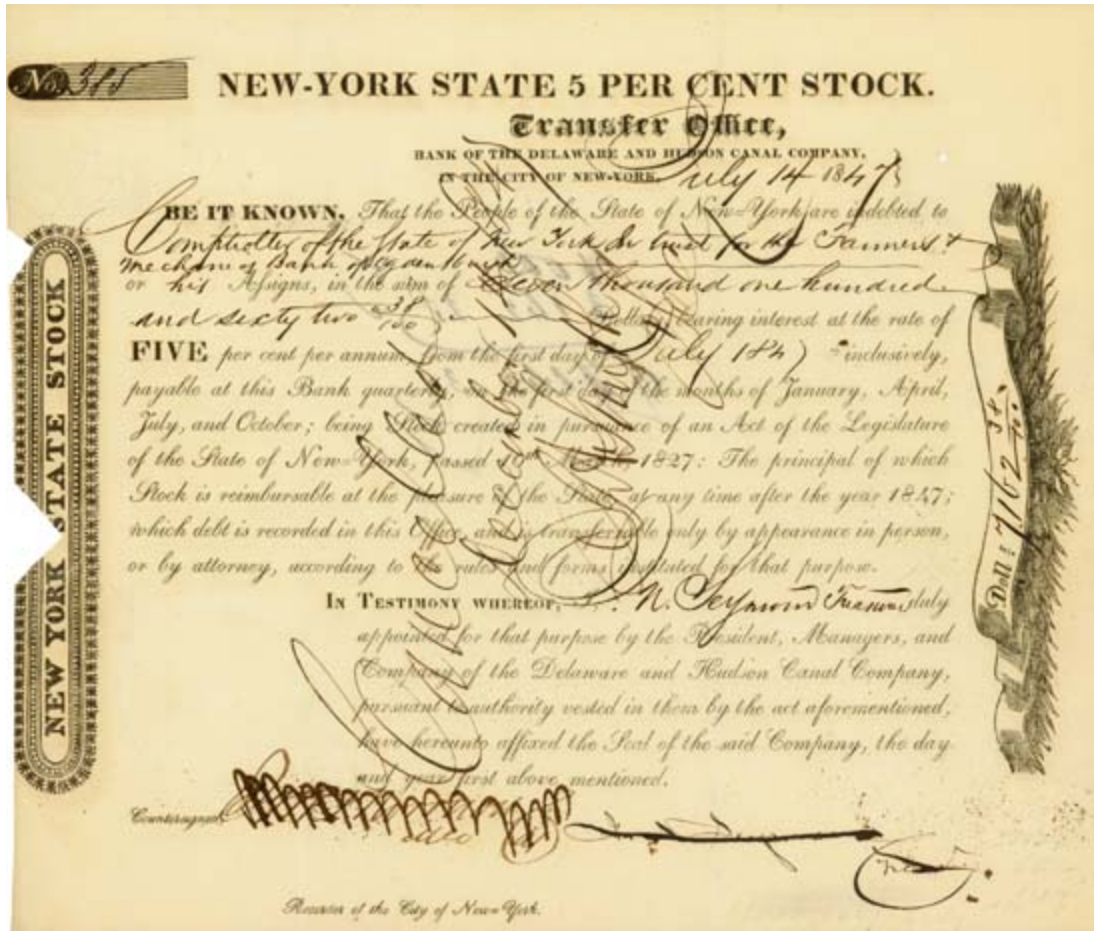 No. 385
NEW-YORK STATE 5 PER CENT STOCK.
Transfer Office,
BANK OF THE DELAWARE AND HUDSON CANAL COMPANY,
IN THE CITY OF NEW-YORK, July 14 1847
BE IT KNOWN, That the People of the State of New=York, are indebted to
Comptroller of the State of New York In trust for the Farmers &
Mechanics Bank of Ogdensburgh
or his Assigns, in the sum of Seven thousand one hundred
and sixty two 38/100 Dollars, bearing interest at the rate of
FIVE per cent per annum, from the first day of July 1847 inclusively,
payable at this Bank quarterly, on the first day of the months of January, April,
July, and October; being Stock created in pursuance of an Act of the Legislature
of the State of New=York, passed March, 1827: The principal of which
Stock is reimbursable at the pleasure of the State, at any time after the year 1847;
which debt is recorded in this Office, and is transferable only by appearance in person,
or by attorney, according to the rules and forms instituted for that purpose.
IN TESTIMONY WHEREOF, I, N. Seymour Treasurer duly
appointed for that purpose by the President, Managers, and
Company of the Delaware and Hudson Canal Company,
pursuant to authority vested in them by the act aforementioned,
have hereunto affixed the Seal of the said Company, the day
and year first above mentioned.
Countersigned,
Recorder of the City of New=York.
NEW YORK STATE STOCK
Doll.s 7162 38/100
Cancelled